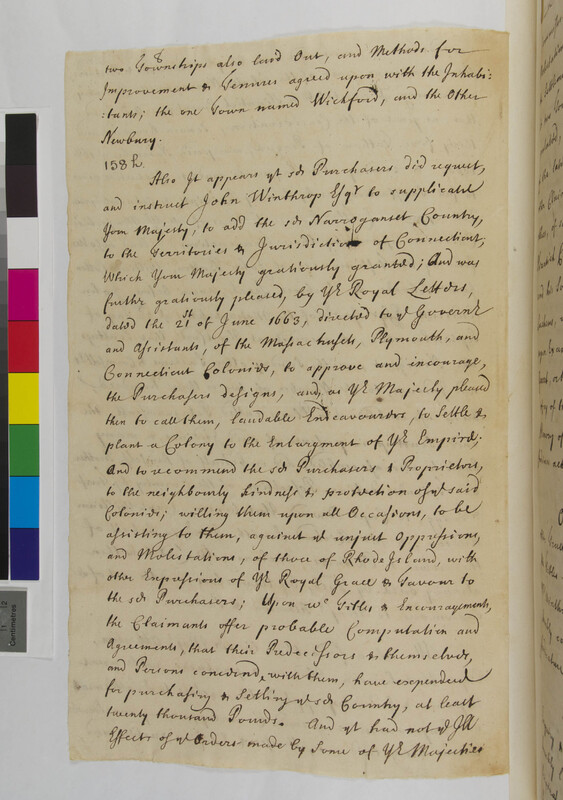 two Townships also laid Out, and Methods for
Improvement & Tenures agreed upon with the Inhabi=
:tants; the one Town named Wickford, and the Other
Newbury.
158
Also It appears yt sd Purchasers did request,
and instruct John Winthrop Esqr to supplicate
Your Majesty, to add the sd Narroganset Country,
to the Territories & Jurisdiction of Connecticut,
Which Your Majesty gratiously granted; And was
further gratiously pleased, by Yr Royal Letters,
dated the 21st of June 1663, directed to ye Governr
and Assistants, of the Massachusets, Plymouth, and
Connecticut Colonies, to approve and incourage,
the Purchasers designs, and, as Yr Majesty pleased
then to call them, laudable Endeavours, to Settle &
plant a Colony to the Enlargment of Yr Empire;
And to recommend the sd Purchasers & Proprietors,
to the neighbourly kindness & protection of ye said
Colonies; willing them upon all Occasions, to be
assisting to them, against ye unjust Oppressions,
and Molestations, of those of Rhode Island, with
other Expressions of Yr Royal Grace & Favour to
the sd Purchasers; Upon wc Titles & Encouragements,
the Claimants offer probable Computation and
Agreements, that their Predecessors & themselves,
and Persons concernd, with them, have expended
for purchasing & Setling ye sd Country, at least
twenty thousand Pounds. And yt had not ye Ill
Effects of ye Orders made by Some of Yr Majesties
Centimetres